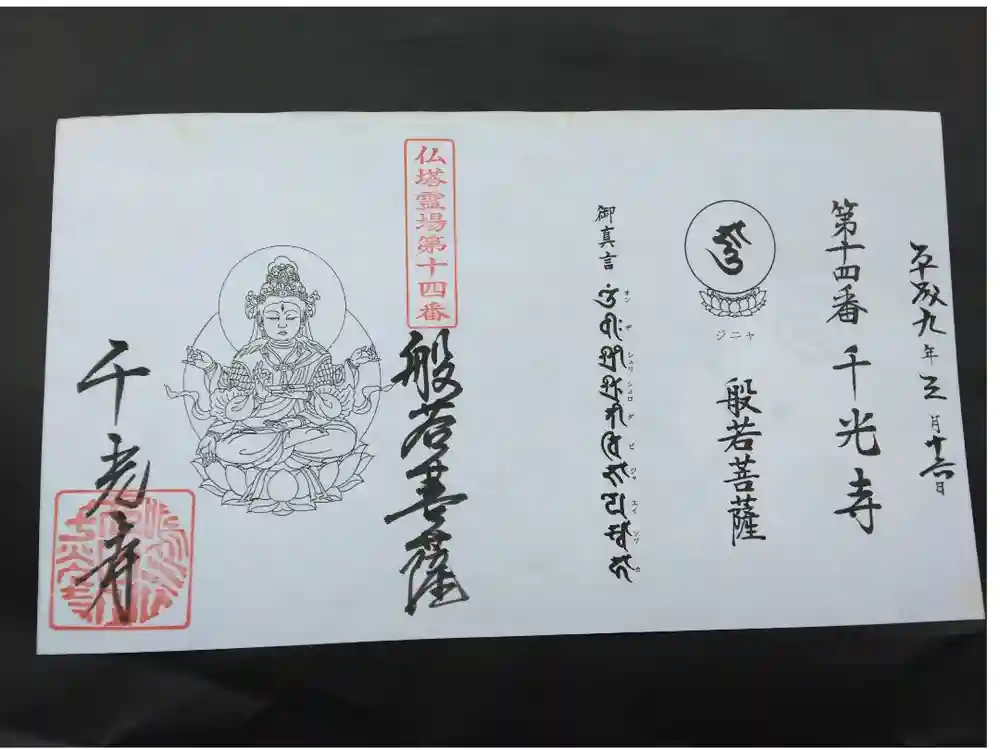 平成九年三月十六日
第十四番 千光寺
ジニャ
般若菩薩
御真言
オン ヂ シュリ シュロ タ ビ ジャ エイ ソワ カ
仏塔霊場第十四番
般若菩薩
千光寺